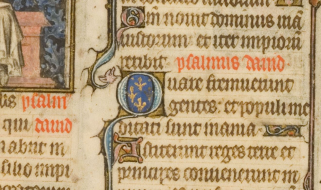 m nouit dominus uia
iustorum et iter impiorū
peribit psalmus dauid
Quare fremuerunt
gentes et populi me
ditati sunt inania
Astiterunt reges terre et
principes conuenerunt in
psalm
qui dauid
n abiit in
filio impi